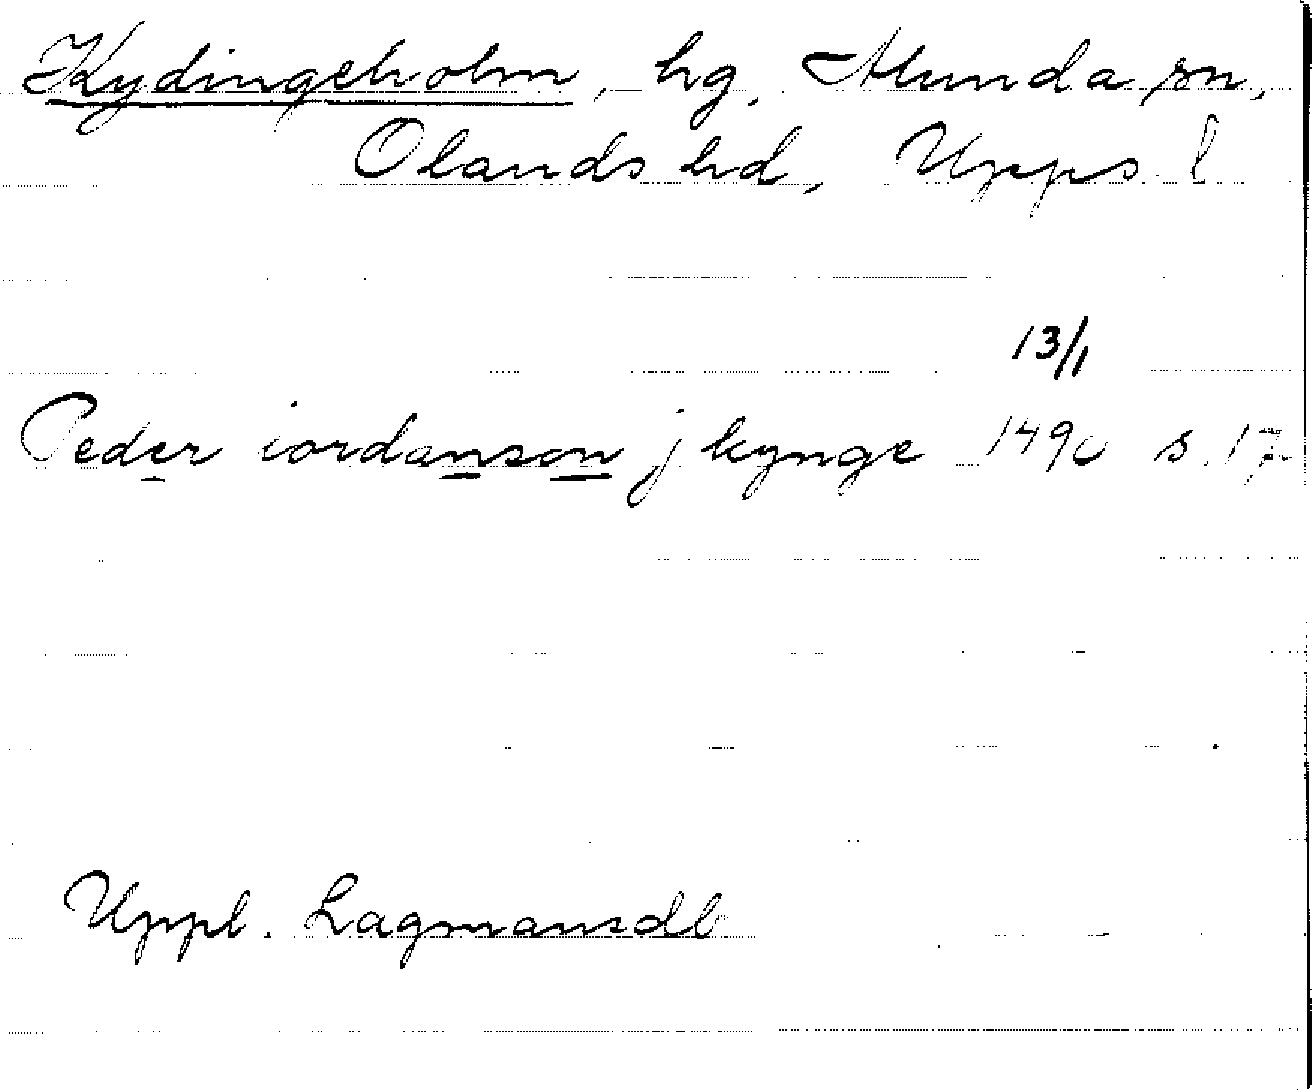 Kydingeholm, hg. Alunda sn,
Olands hd, Upps l
13/1
Peder iordanson j kynge 1490 s. 17
Uppl. Lagmansdb